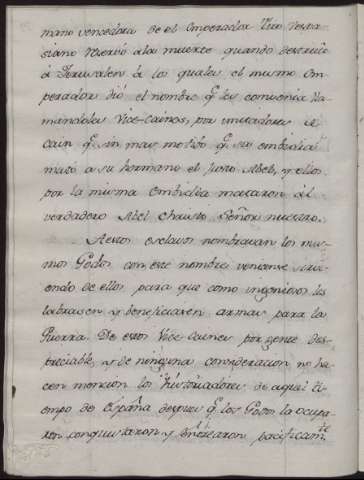 mano vencedora de el Emperador Tito Vespa
siano reservó a la muerte quando destruió
à Jerusalen à los quales el mismo Em
perador dió el nombre q̃ les convenia lla
mandoles Vice-Cainos, por imitadores de
Cain q̃ sin mas motibo q̃ su embidia
mató a su hermano el justo Abel, y ellos
por la misma Embidia mataron al
verdadero Abel Christo Señor nuestro.
A estos esclavos nombravan los mis
mos Godos con este nombre y venianse sirvi
endo de ellos para que como ingeniosos les
labrasen y beneficiasen armas para la
Guerra. De estos Vice Cainos por gente des
preciable, y de ninguna consideracion no ha
cen mencion los Historiadores de aquel ti
empo de España despues q̃ los Godos la ocupa
ron conquistaron y pacificam.te